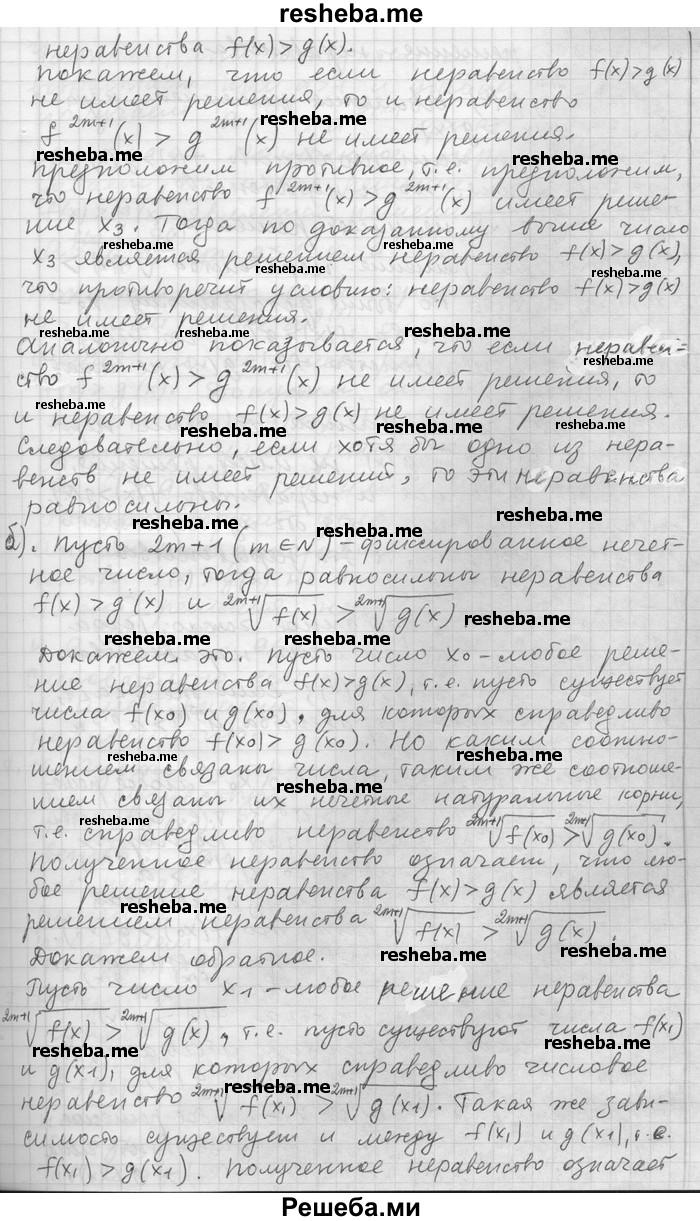 resheba.me
неравенства f(x)>g(x).
Покажем, что если неравенство f(x)>g(x)
не имеет решения, то и неравенство
f^{2m+1}(x) > g^{2m+1}(x) не имеет решения.
resheba.me
resheba.me
предположим противное, т.е. предположим,
что неравенство f^{2m+1}(x) > g^{2m+1}(x) имеет реше-
ние x₃. Тогда по доказанному выше число
resheba.me
x₃ является решением неравенство f(x)>g(x),
resheba.me
resheba.me
что противоречит условию: неравенство f(x)>g(x)
не имеет решения.
resheba.me
resheba.me
Аналогично показывается, что если неравен-
ство f^{2m+1}(x) > g^{2m+1}(x) не имеет решения, то
resheba.me
и неравенство f(x)>g(x) не имеет решения.
resheba.me
resheba.me
Следовательно, если хотя бы одно из нера-
венств не имеет решений, то эти неравенства
равносильны.
resheba.me
resheba.me
б). Пусть 2m+1 (m∈N) – фиксированное нечет-
ное число, тогда равносильны неравенства
f(x) > g(x) и ^{2m+1}√f(x) > ^{2m+1}√g(x)
resheba.me
resheba.me
resheba.me
Докажем это. Пусть число x₀ – любое реше-
ние неравенства f(x)>g(x), т.е. пусть существует
resheba.me
resheba.me
числа f(x₀) и g(x₀), для которых справедливо
неравенство f(x₀)> g(x₀). Но каким соотно-
resheba.me
шением связаны числа, таким же соотноше-
resheba.me
нием связаны их нечетные натуральные корни,
т.е. справедливо неравенство ^{2m+1}√f(x₀) > ^{2m+1}√g(x₀).
resheba.me
resheba.me
Полученное неравенство означает, что лю-
бое решение неравенства f(x)>g(x) является
resheba.me
решением неравенства ^{2m+1}√f(x) > ^{2m+1}√g(x).
resheba.me
Докажем обратное.
resheba.me
Пусть число x₁ – любое решение неравенства
^{2m+1}√f(x) > ^{2m+1}√g(x), т.е. пусть существуют числа f(x₁)
resheba.me
resheba.me
и g(x₁), для которых справедливо числовое
resheba.me
неравенство ^{2m+1}√f(x₁) > ^{2m+1}√g(x₁). Такая же зави-
симость существует и между f(x₁) и g(x₁), т.е.
resheba.me
resheba.me
f(x₁) > g(x₁). Полученное неравенство означает
Решеба.ми